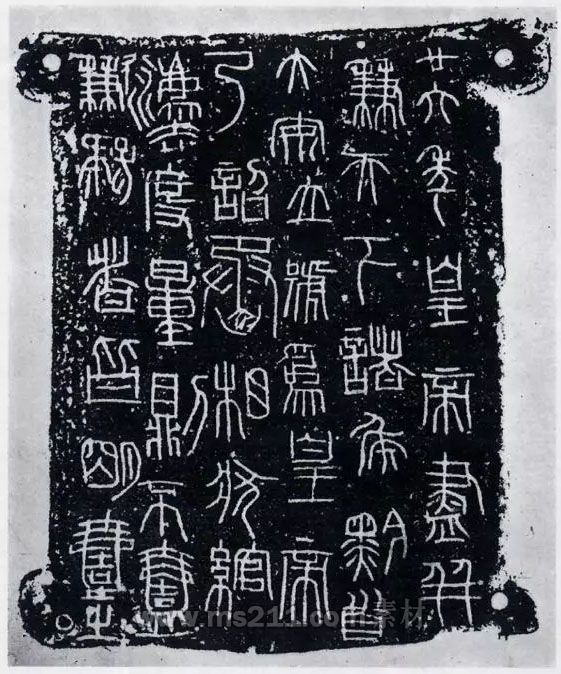 廿六年皇帝盡并
兼天下諸侯黔首
大安立號爲皇帝
乃詔丞相狀綰
灋度量則不壹
歉疑者皆明壹之
www.ms211.com素材